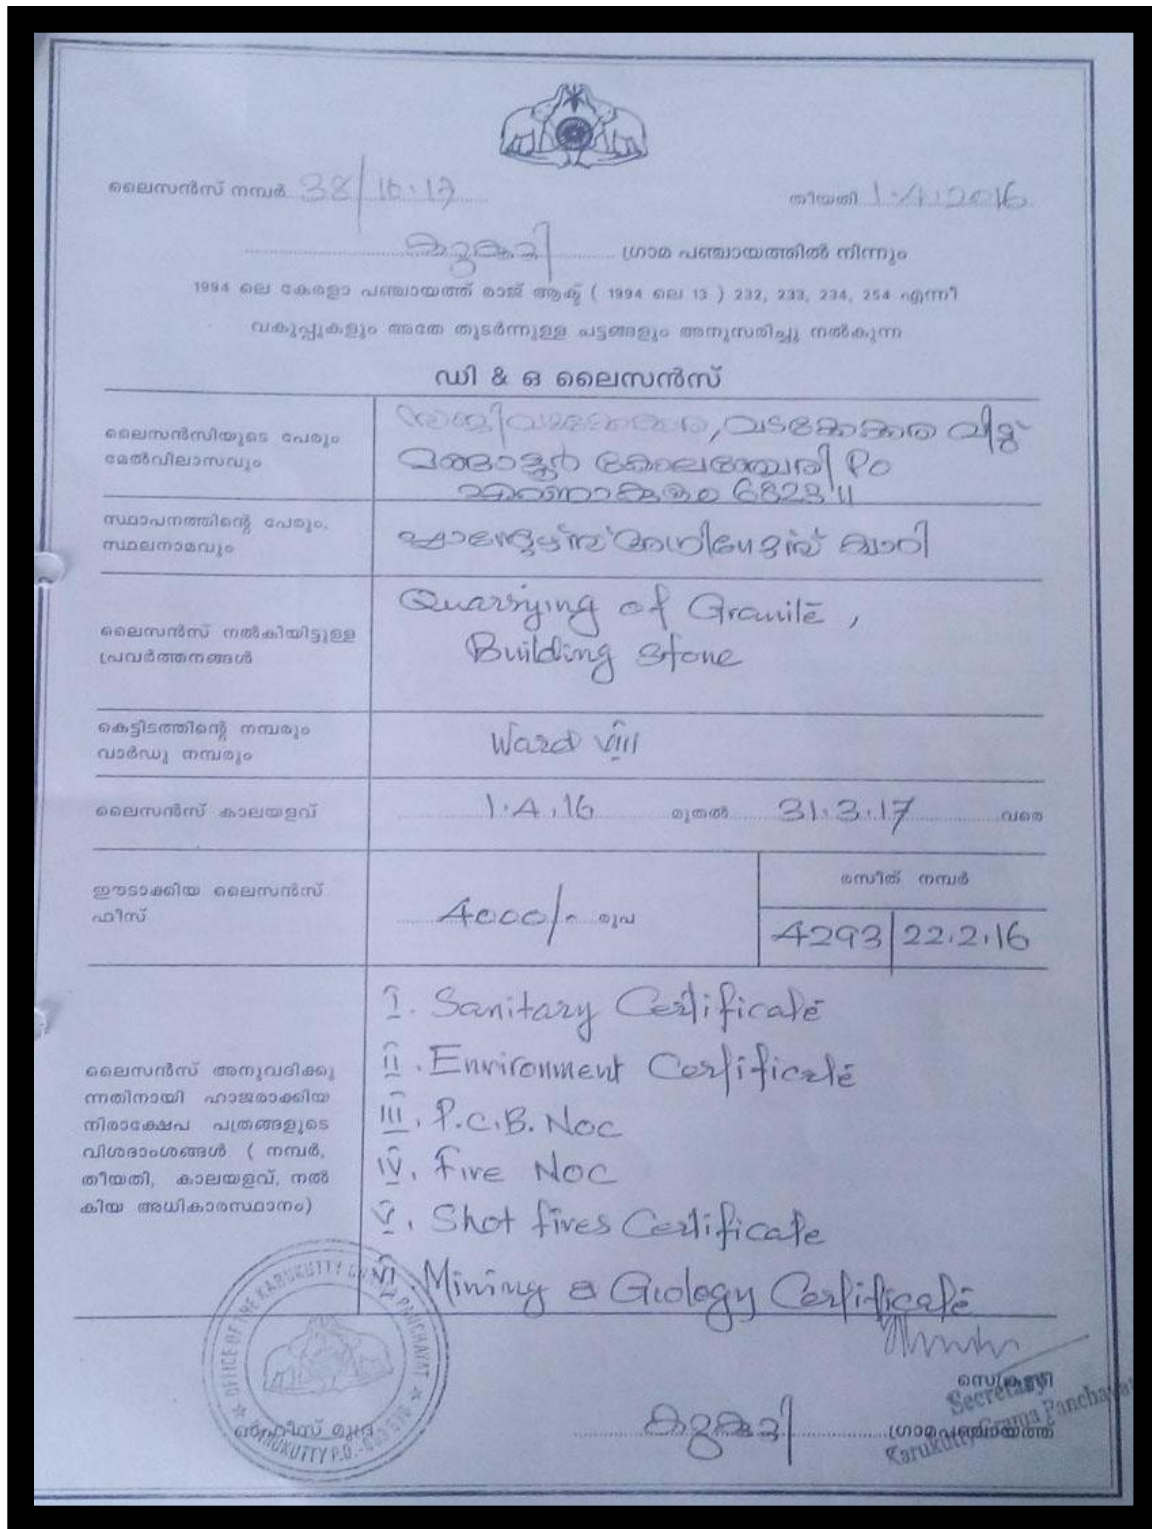 ലൈസൻസ് നമ്പർ 38/16.17
തീയതി 1.4.2016
കറുകുറ്റി ഗ്രാമ പഞ്ചായത്തിൽ നിന്നും
1994 ലെ കേരളാ പഞ്ചായത്ത് രാജ് ആക്ട് ( 1994 ലെ 13 ) 232, 233, 234, 254 എന്നീ
വകുപ്പുകളും അതേ തുടർന്നുള്ള ചട്ടങ്ങളും അനുസരിച്ചു നൽകുന്ന
ഡി & ഒ ലൈസൻസ്
ലൈസൻസിയുടെ പേരും
മേൽവിലാസവും
വടക്കേക്കര വീട്
കോലഞ്ചേരി PO
എറണാകുളം 682311
സ്ഥാപനത്തിന്റെ പേരും,
സ്ഥലനാമവും
ക്വാറി
ലൈസൻസ് നൽകിയിട്ടുള്ള
പ്രവർത്തനങ്ങൾ
Quarrying of Granite,
Building Stone
കെട്ടിടത്തിന്റെ നമ്പരും
വാർഡു നമ്പരും
Ward VIII
ലൈസൻസ് കാലയളവ്
1.4.16 മുതൽ 31.3.17 വരെ
ഈടാക്കിയ ലൈസൻസ്
ഫീസ്
4000/- രൂപ
രസീത് നമ്പർ
4293 22.2.16
ലൈസൻസ് അനുവദിക്കു
ന്നതിനായി ഹാജരാക്കിയ
നിരാക്ഷേപ പത്രങ്ങളുടെ
വിശദാംശങ്ങൾ ( നമ്പർ,
തീയതി, കാലയളവ്, നൽ
കിയ അധികാരസ്ഥാനം)
I. Sanitary Certificate
II. Environment Certificate
III. P.C.B. Noc
IV. Fire Noc
V. Shot fires Certificate
VI Mining & Geology Certificate
OFFICE OF THE KARUKUTTY GRAMA PANCHAYAT
KARUKUTTY P.O.
ഓഫീസ് മുദ്ര
സെക്രട്ടറി
Secretary
കറുകുറ്റി ഗ്രാമപഞ്ചായത്ത്
Karukutty Grama Panchayat